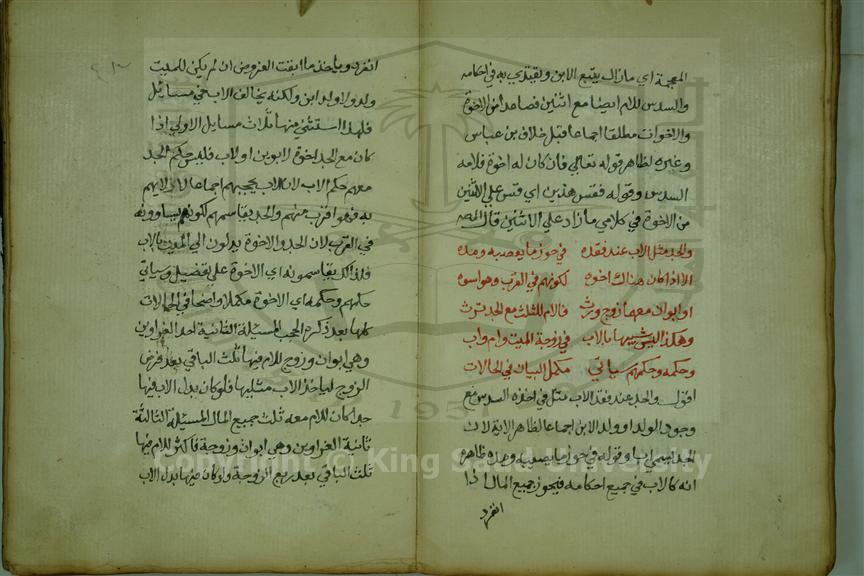 المعجمة اي مازال يتبع الابن ويقتدي به في احكامه
والسدس للام ايضا مع اثنين فصاعدا من الاخوة
والاخوات مطلقا اجماعا قبل خلاف بن عباس
وغيره لظاهر قوله تعالي فان كان له اخوة فلامه
السدس وقوله فقس هذين اي قس علي الاثنين
من الاخوة في كلامي ما زاد علي الاثنين قال المص
والجد مثل الاب عند فقده في حوز ما يصيبه ومده
الا اذا كان هناك اخوة لكونهم في القرب وهو اسوه
او ابوان معهما زوج ورث فالام للثلث مع الجد ترث
وهكذا ليس شبيها بالاب في زوجة الميت وام واب
وحكمه وحكمهم سياتي مكمل البيان في الحالات
اقول والجد عند فقد الاب مثل في اخذه السدس مع
وجود الولد او ولد الابن اجماعا لظاهر الاية لان
الجد يسمي ابا وقوله في حوز ما يصيبه ومده ظاهره
انه كالاب في جميع احكامه فيحوز جميع المال اذا
انفرد
انفرد وياخذ ما ابقت الفروض ان لم يكن للميت
ولد ولا ولد ابن ولكنه يخالف الاب في مسائل
فلهذا استثني منها ثلاث مسايل الاولي اذا
كان مع الجد اخوة لابوين او لاب فليس حكم الجد
معهم حكم الاب لان الاب يحجبهم اجماعا لادلايهم
به فهو اقرب منهم والجد يقاسمهم لكونهم يساوونه
في القرب لان الجد والاخوة يدلون الي الميت بالاب
فلذلك يقاسمونه اي الاخوة علي تفضيل وسياتي
حكمهم وحكمه اي الاخوة مكملا واضحا في الحالات
كلها بعد ذكره الحجب المسئلة الثانية احد الغراوين
وهي ابوان وزوج للام فيها ثلث الباقي بعد فرض
الزوج لياخذ الاب مثليها فلو كان بدل الاب فيها
جدا كان للام معه ثلث جميع المال المسئلة الثالثة
ثانية الغراوين وهي ابوان وزوجة فاكثر للام فيها
ثلث الباقي بعد ربع الزوجة ولو كان فيها بدل الاب
Copyright © King Saud University
1957